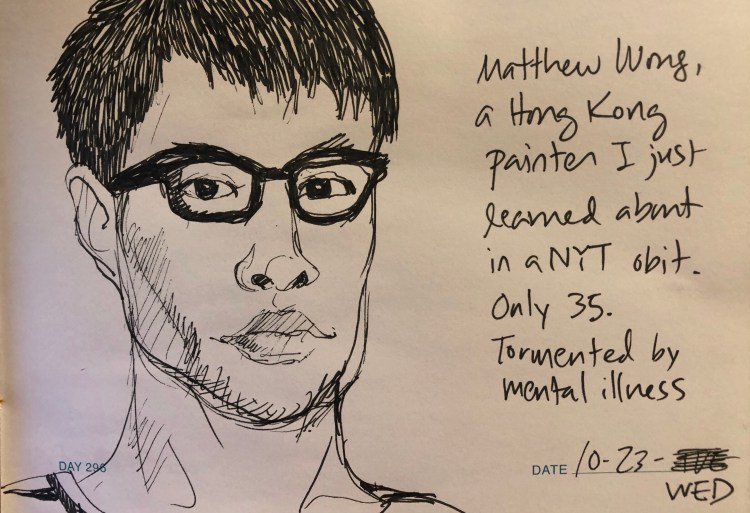 Matthew Wong,
a Hong Kong
painter I just
learned about
in a NYT obit.
Only 35.
Tormented by
mental illness
DAY 296
DATE 10-23-
WED